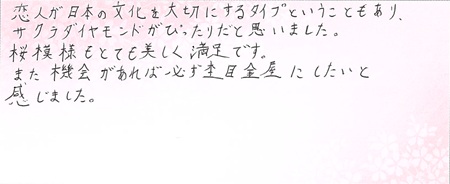 恋人が日本の文化を大切にするタイプということもあり、
サクラダイヤモンドがぴったりだと思いました。
桜模様もとても美しく満足です。
また機会があれば必ず杢目金屋にしたいと
感じました。